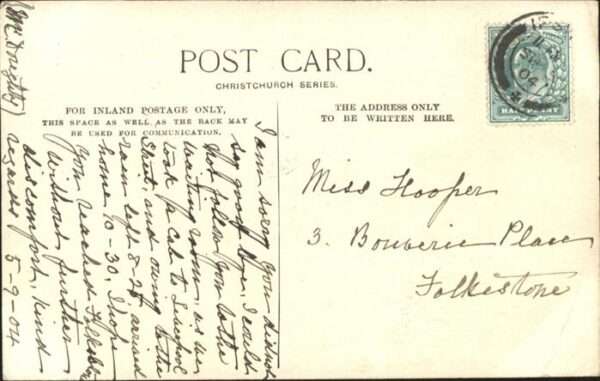 POST CARD.
CHRISTCHURCH SERIES.
FOR INLAND POSTAGE ONLY,
THIS SPACE AS WELL AS THE BACK MAY
BE USED FOR COMMUNICATION.
THE ADDRESS ONLY
TO BE WRITTEN HERE.
HALFPENNY
04
Miss Hooper
3. Bouverie Place
Folkestone
I am sorry you did not
say good bye, I could
not follow you to the
waiting room, as we
took a cab to Liverpool
Street and owing to the
rain left 8-25 arrived
home 10-30. I hope
you reached Folkestone
without further
discomfort, kind
regards 5-9-04